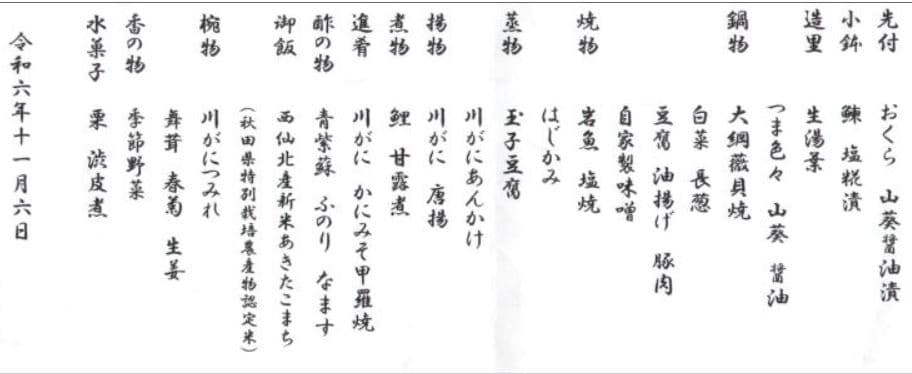 先付　おくら　山葵醤油漬
小鉢　鰊　塩糀漬
造里　生湯葉
つま色々　山葵　醤油
鍋物　大綱薇貝焼
白菜　長葱
豆腐　油揚げ　豚肉
自家製味噌
焼物　岩魚　塩焼
はじかみ
蒸物　玉子豆腐
川がにあんかけ
揚物　川がに　唐揚
煮物　鯉　甘露煮
進肴　川がに　かにみそ甲羅焼
酢の物　青紫蘇　ふのり　なます
御飯　西仙北産新米あきたこまち
（秋田県特別栽培農産物認定米）
椀物　川がにつみれ
舞茸　春菊　生姜
香の物　季節野菜
水菓子　栗　渋皮煮
令和六年十一月六日